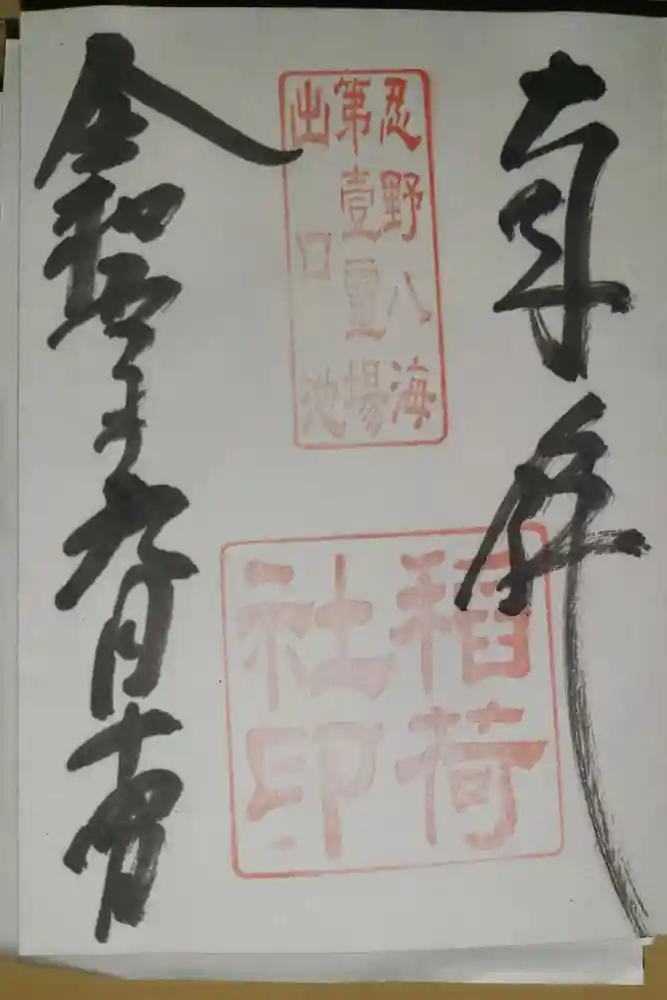 奉拝
忍野八海
第壹霊場
出口池
稲荷
社印
令和四年九月